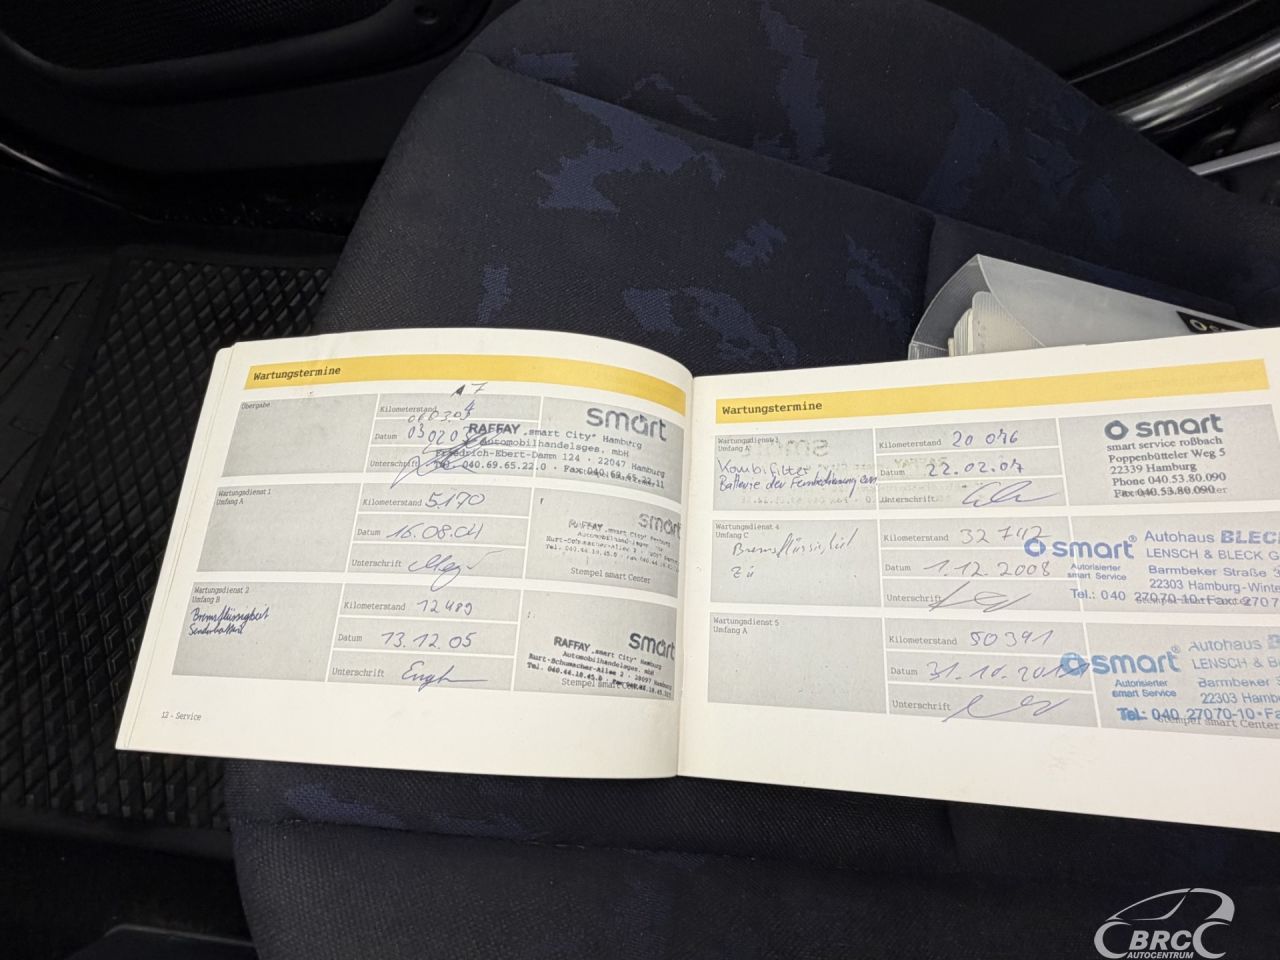 Wartungstermine
Übergabe
Kilometerstand
Datum
Unterschrift
smart
RAFFAY „smart City“ Hamburg
Automobilhandelsges. mbH
Friedrich-Ebert-Damm 124 · 22047 Hamburg
Tel. 040.69.65.22.0 · Fax 040.69.65.22.11
Stempel smart Center
Wartungsdienst 1
Umfang A
Kilometerstand 5170
Datum 16.08.04
Unterschrift
smart
RAFFAY „smart City“ Hamburg
Automobilhandelsges. mbH
Kurt-Schumacher-Allee 2 · 20097 Hamburg
Tel. 040.44.18.45.0
Stempel smart Center
Wartungsdienst 2
Umfang B
Bremsflüssigkeit
Kilometerstand 12489
Datum 13.12.05
Unterschrift
smart
RAFFAY „smart City“ Hamburg
Automobilhandelsges. mbH
Kurt-Schumacher-Allee 2 · 20097 Hamburg
Tel. 040.44.18.45.0
Stempel smart Center
12 - Service
Wartungstermine
Wartungsdienst 3
Umfang A
Kombifilter
Batterie der Fernbedienung ern
Kilometerstand 20 076
Datum 22.02.07
Unterschrift
smart
smart service roßbach
Poppenbütteler Weg 5
22339 Hamburg
Phone 040.53.80.090
Fax 040.53.80.090
Wartungsdienst 4
Umfang C
Bremsflüssigkeit
Kilometerstand 32 742
Datum 1.12.2008
Unterschrift
smart
Autorisierter
smart Service
Autohaus BLECK
LENSCH & BLECK G
Barmbeker Straße
22303 Hamburg-Winte
Tel.: 040 27070-10 · Fax: 2707
Wartungsdienst 5
Umfang A
Kilometerstand 50391
Datum 31.10.201
Unterschrift
smart
Autorisierter
smart Service
Autohaus
LENSCH & B
Barmbeker
22303 Hamb
Tel.: 040 27070-10 · Fa
Stempel smart Center
BRC
AUTOCENTRUM